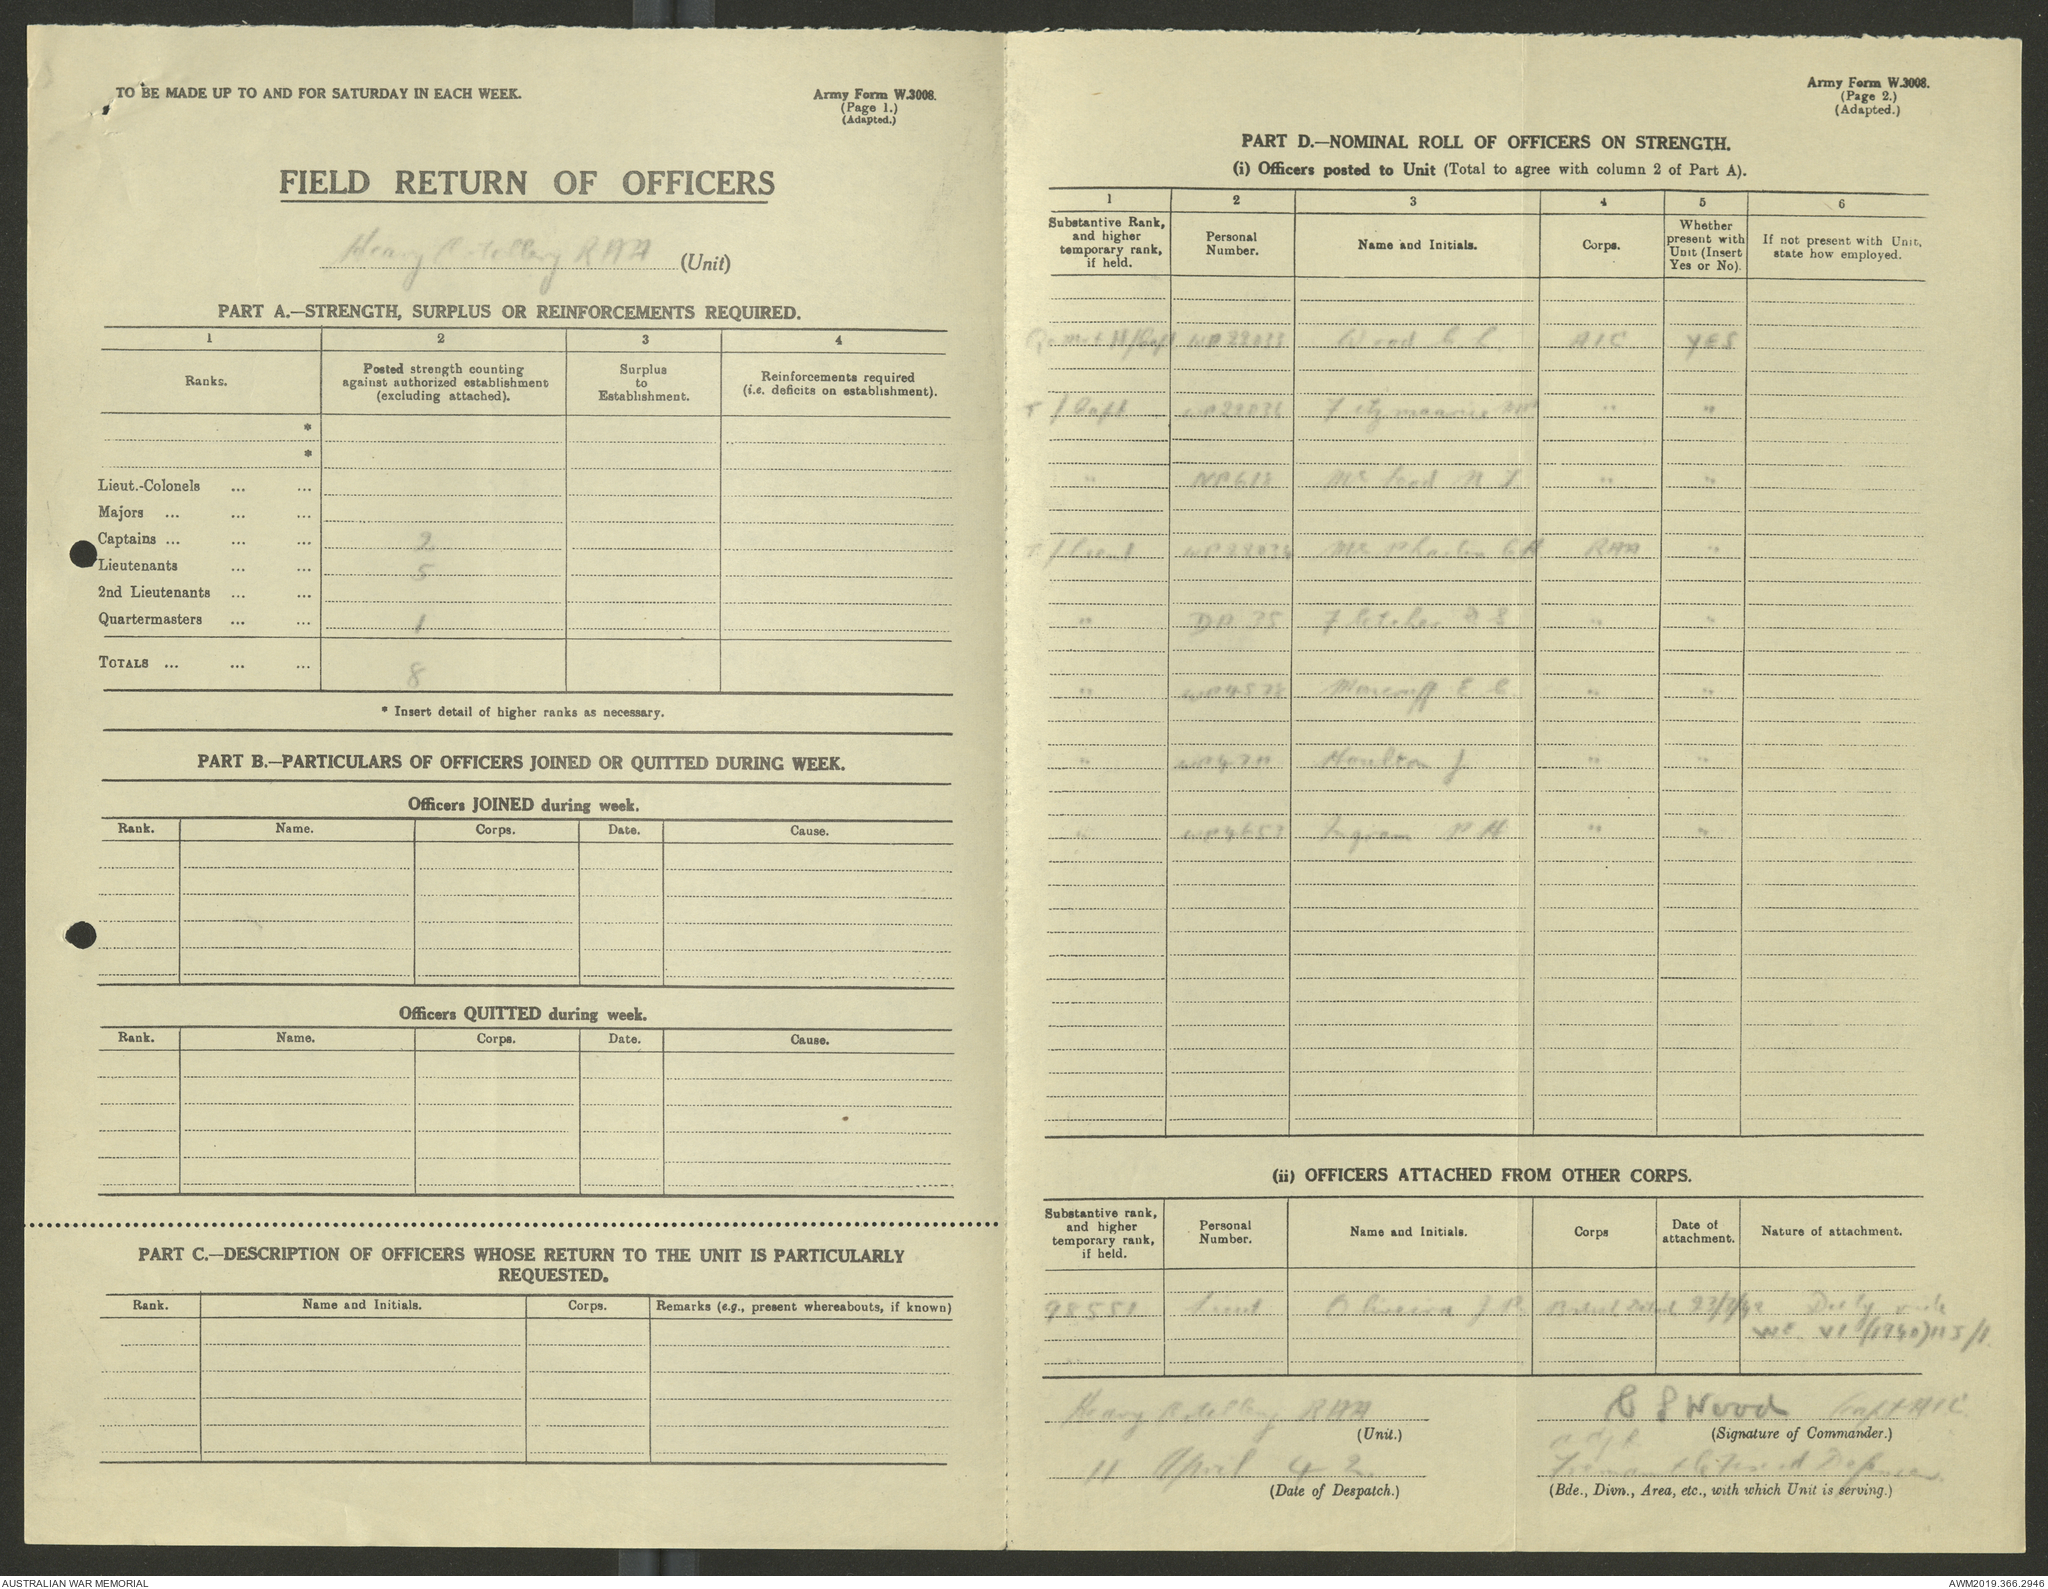 TO BE MADE UP TO AND FOR SATURDAY IN EACH WEEK.
Army Form W.3008.
(Page 1.)
(Adapted.)
FIELD RETURN OF OFFICERS
Heavy Artillery RAA (Unit)
PART A.—STRENGTH, SURPLUS OR REINFORCEMENTS REQUIRED.
1 2 3 4
Ranks. Posted strength counting against authorized establishment (excluding attached). Surplus to Establishment. Reinforcements required (i.e. deficits on establishment).
*
*
Lieut.-Colonels ... ...
Majors ... ... ...
Captains ... ... ... 2
Lieutenants ... ... 5
2nd Lieutenants ... ...
Quartermasters ... ... 1
TOTALS ... ... ... 8
* Insert detail of higher ranks as necessary.
PART B.—PARTICULARS OF OFFICERS JOINED OR QUITTED DURING WEEK.
Officers JOINED during week.
Rank. Name. Corps. Date. Cause.
Officers QUITTED during week.
Rank. Name. Corps. Date. Cause.
PART C.—DESCRIPTION OF OFFICERS WHOSE RETURN TO THE UNIT IS PARTICULARLY
REQUESTED.
Rank. Name and Initials. Corps. Remarks (e.g., present whereabouts, if known)
Army Form W.3008.
(Page 2.)
(Adapted.)
PART D.—NOMINAL ROLL OF OFFICERS ON STRENGTH.
(i) Officers posted to Unit (Total to agree with column 2 of Part A).
1 2 3 4 5 6
Substantive Rank, and higher temporary rank, if held. Personal Number. Name and Initials. Corps. Whether present with Unit (Insert Yes or No). If not present with Unit, state how employed.
H/Capt Wood AIC YES
T/Capt Fitzmaurice " "
" " "
T/Lieut RAA "
" DP 35 Fletcher " "
" " "
" Moulton J " "
Ingram P H " "
(ii) OFFICERS ATTACHED FROM OTHER CORPS.
Substantive rank, and higher temporary rank, if held. Personal Number. Name and Initials. Corps Date of attachment. Nature of attachment.
Lieut Oliveira J Duty vide
WE VI (1940) 115/1
Heavy Artillery RAA
(Unit.)
11 April 42
(Date of Despatch.)
Wood Capt AIC
(Signature of Commander.)
adjt
Fremantle Defences
(Bde., Divn., Area, etc., with which Unit is serving.)
AUSTRALIAN WAR MEMORIAL
AWM2019.366.2946